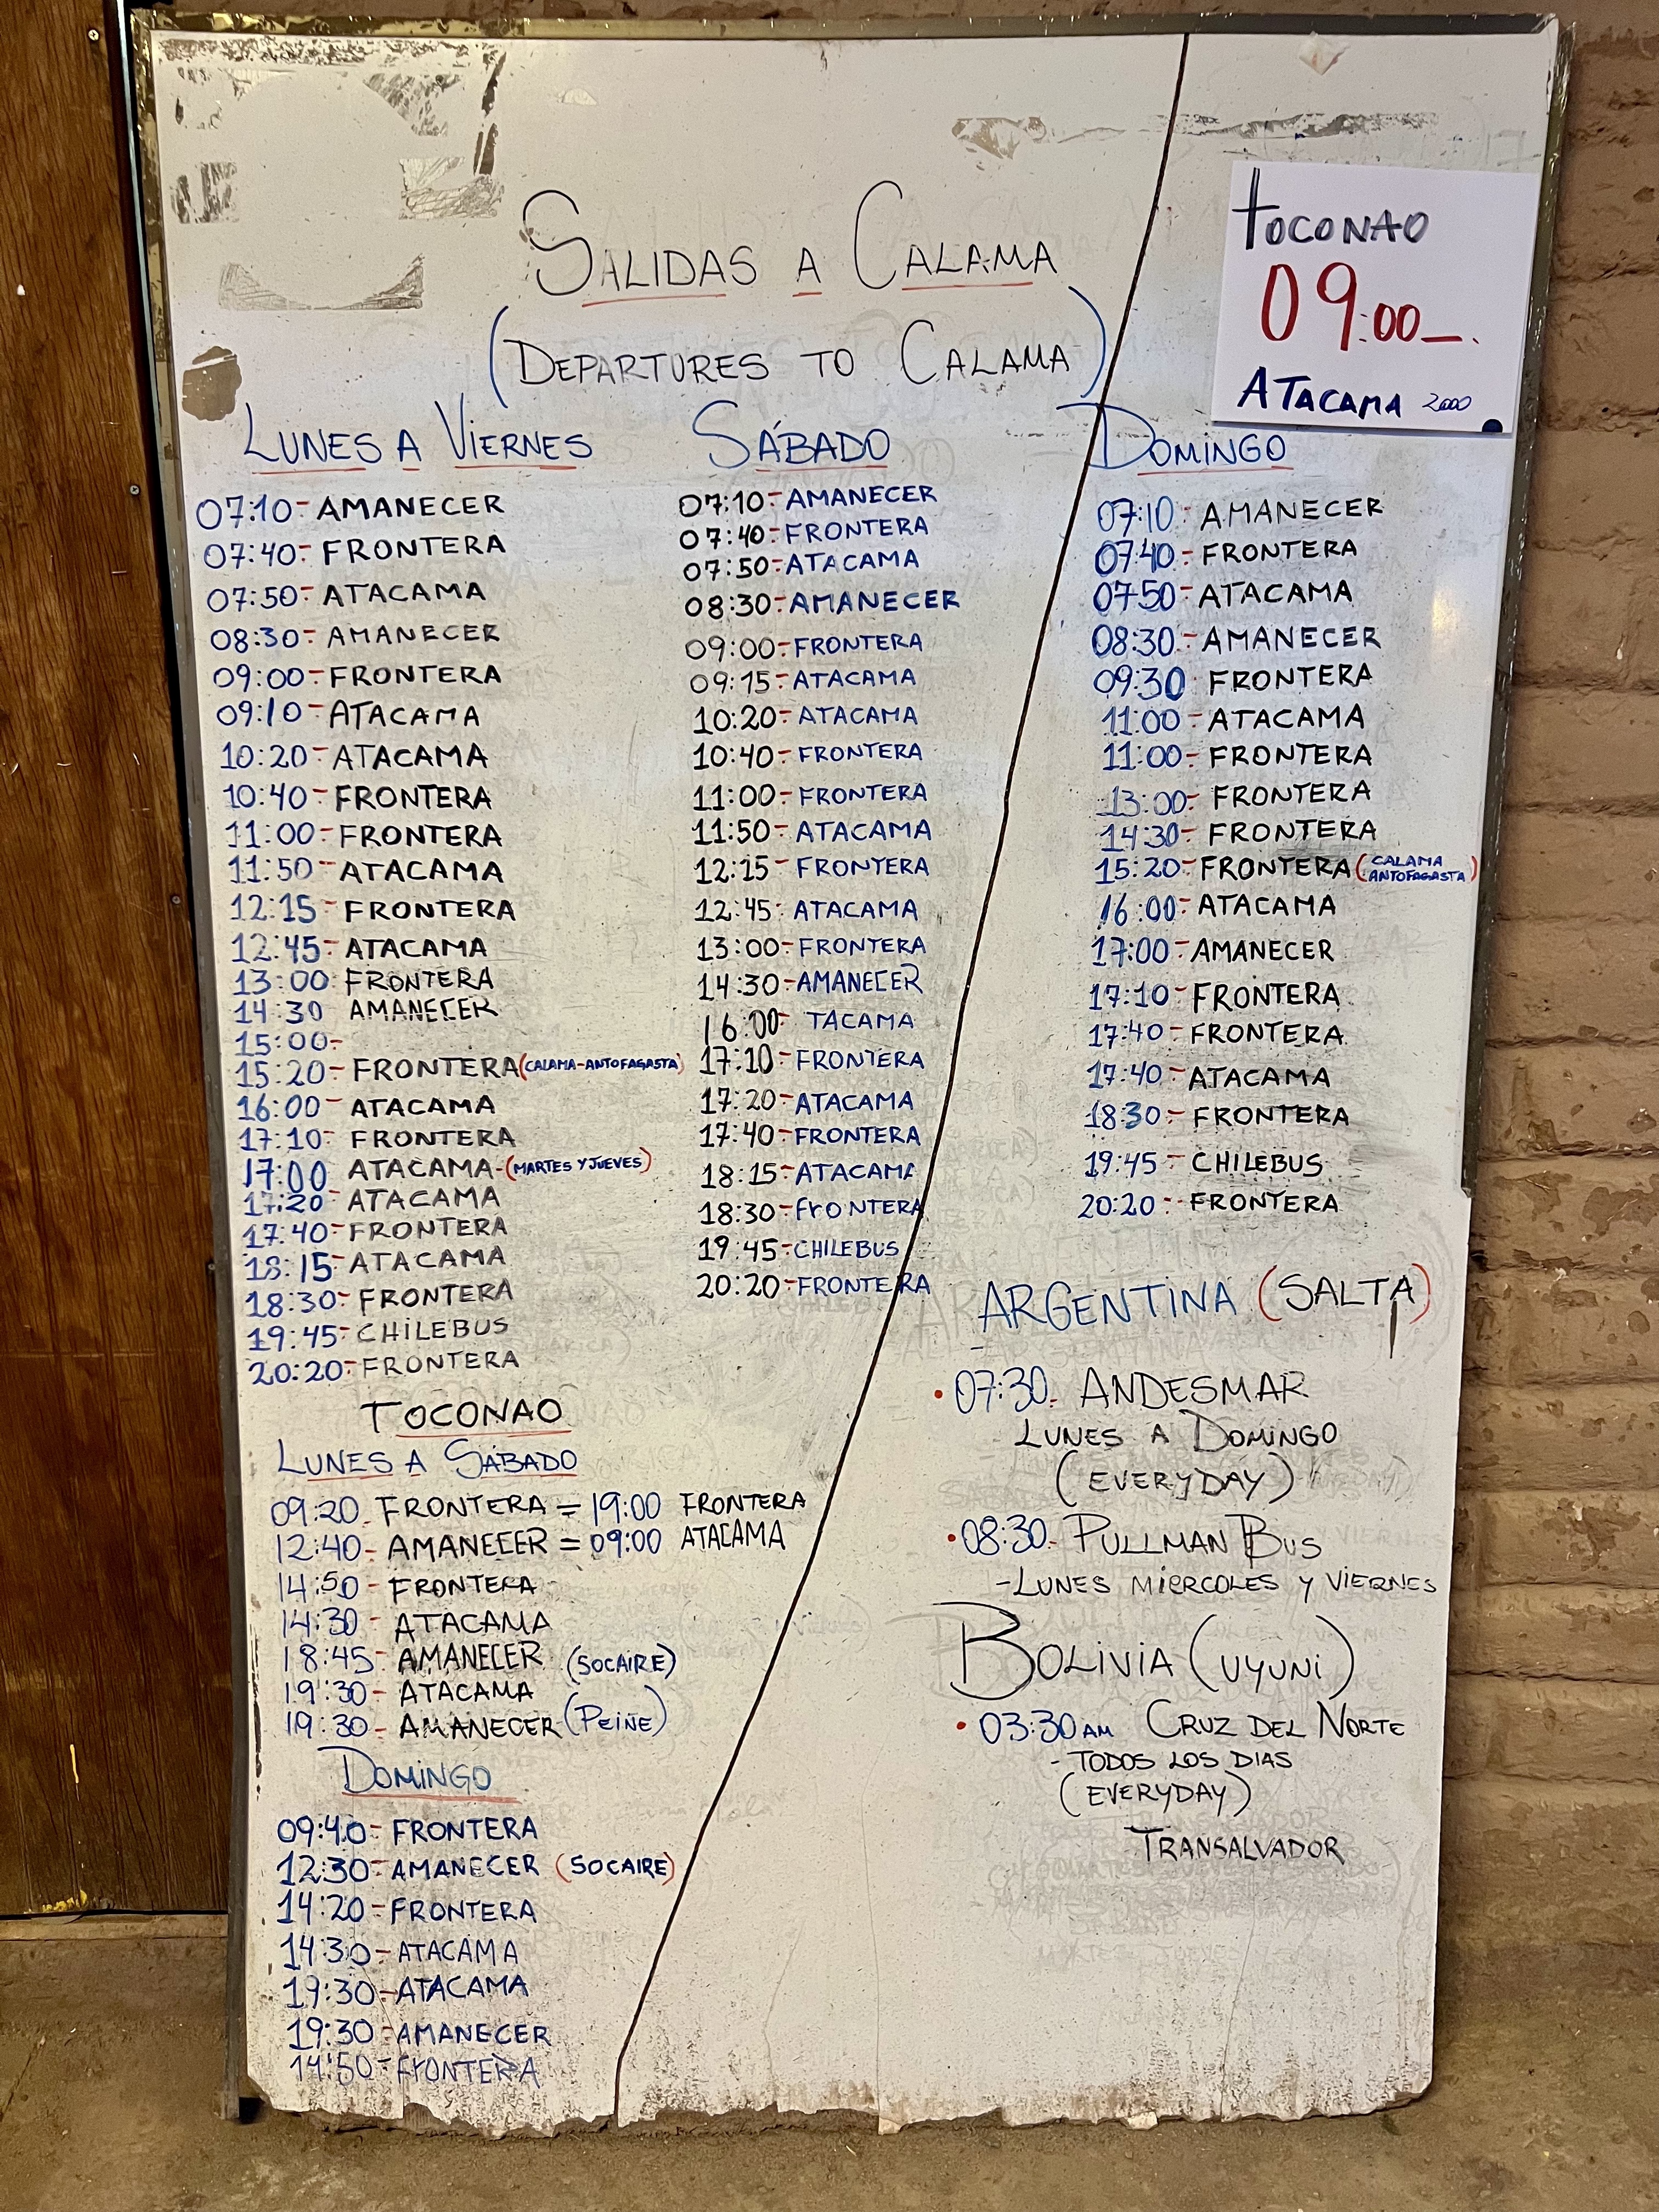 SALIDAS A CALAMA
(DEPARTURES TO CALAMA)
TOCONAO
09:00
ATACAMA 2000
LUNES A VIERNES
07:10- AMANECER
07:40- FRONTERA
07:50- ATACAMA
08:30- AMANECER
09:00- FRONTERA
09:10- ATACAMA
10:20- ATACAMA
10:40- FRONTERA
11:00- FRONTERA
11:50- ATACAMA
12:15- FRONTERA
12:45- ATACAMA
13:00 FRONTERA
14:30 AMANECER
15:00-
15:20- FRONTERA (CALAMA-ANTOFAGASTA)
16:00- ATACAMA
17:10- FRONTERA
17:00 ATACAMA-(MARTES Y JUEVES)
17:20- ATACAMA
17:40- FRONTERA
18:15- ATACAMA
18:30- FRONTERA
19:45- CHILEBUS
20:20- FRONTERA
SÁBADO
07:10- AMANECER
07:40- FRONTERA
07:50- ATACAMA
08:30- AMANECER
09:00- FRONTERA
09:15- ATACAMA
10:20- ATACAMA
10:40- FRONTERA
11:00- FRONTERA
11:50- ATACAMA
12:15- FRONTERA
12:45- ATACAMA
13:00- FRONTERA
14:30- AMANECER
16:00- TACAMA
17:10- FRONTERA
17:20- ATACAMA
17:40- FRONTERA
18:15- ATACAMA
18:30- FrONTERA
19:45- CHILEBUS
20:20- FRONTERA
DOMINGO
07:10- AMANECER
07:40- FRONTERA
07:50- ATACAMA
08:30- AMANECER
09:30 FRONTERA
11:00- ATACAMA
11:00- FRONTERA
13:00- FRONTERA
14:30- FRONTERA
15:20- FRONTERA (CALAMA ANTOFAGASTA)
16:00- ATACAMA
17:00- AMANECER
17:10- FRONTERA
17:40- FRONTERA
17:40- ATACAMA
18:30- FRONTERA
19:45- CHILEBUS
20:20- FRONTERA
TOCONAO
LUNES A SÁBADO
09:20- FRONTERA = 19:00 FRONTERA
12:40- AMANECER = 09:00 ATACAMA
14:50- FRONTERA
14:30- ATACAMA
18:45- AMANECER (SOCAIRE)
19:30- ATACAMA
19:30- AMANECER (PEINE)
DOMINGO
09:40- FRONTERA
12:30- AMANECER (SOCAIRE)
14:20- FRONTERA
14:30- ATACAMA
19:30- ATACAMA
19:30- AMANECER
14:50- FrONTERA
ARGENTINA (SALTA)
• 07:30- ANDESMAR
LUNES A DOMINGO
(EVERYDAY)
• 08:30- PULLMAN BUS
-LUNES MIERCOLES Y VIERNES
BOLIVIA (UYUNI)
• 03:30 AM CRUZ DEL NORTE
- TODOS LOS DIAS
(EVERYDAY)
TRANSALVADOR